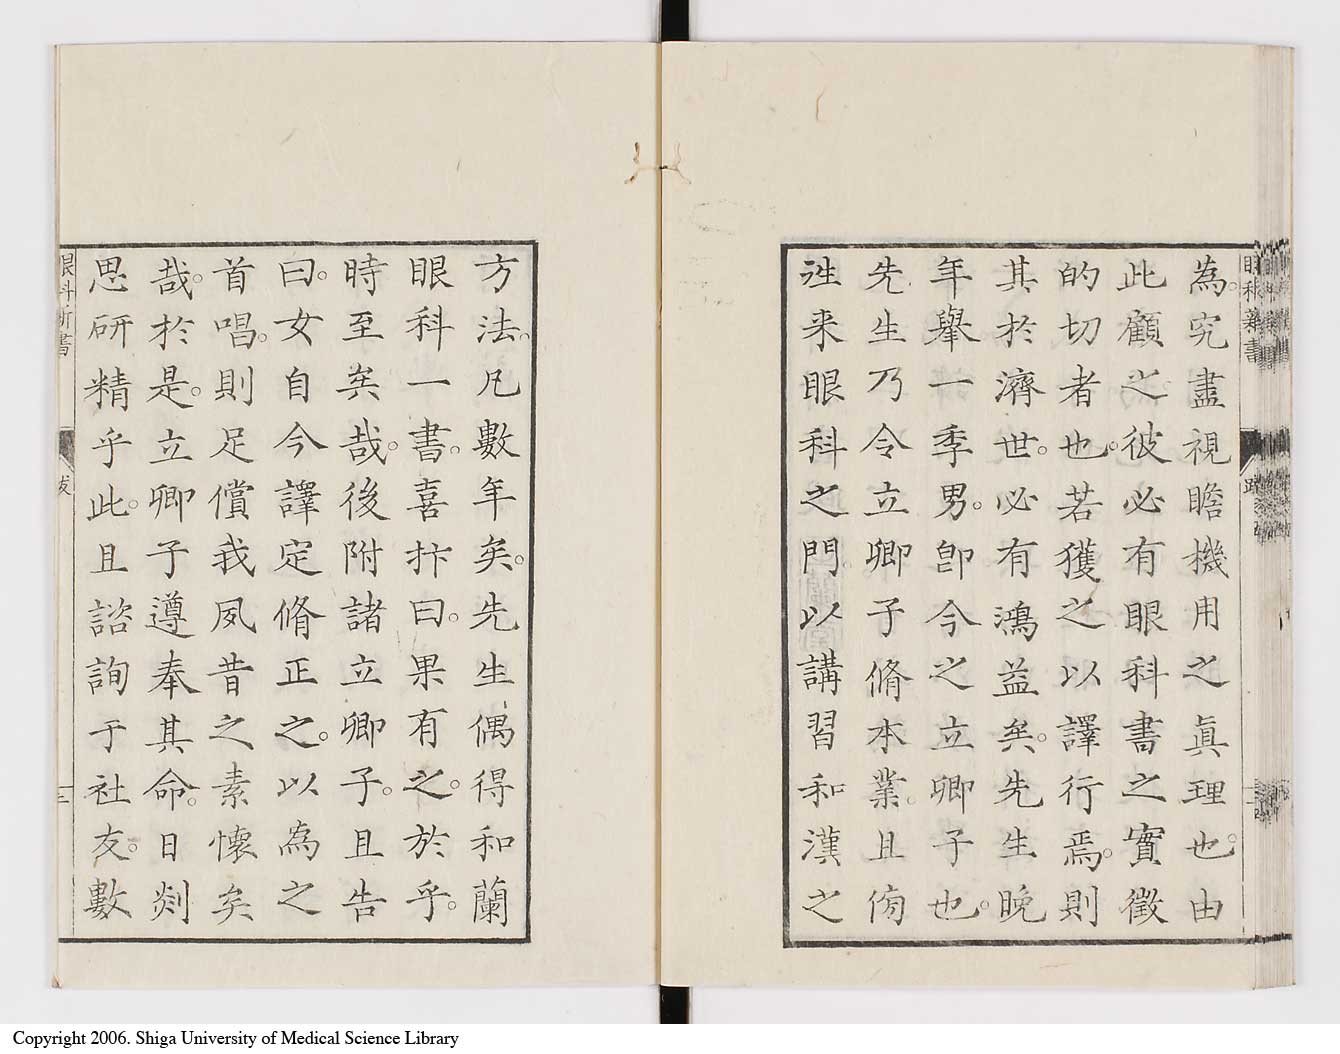 為。究盡視瞻機用之眞理也。由
此顧之。彼必有眼科書之實徵
的切者也。若獲之以譯行焉。則
其於濟世。必有鴻益矣。先生晩
年擧一季男。卽今之立卿子也。
先生乃令立卿子脩本業。且傍
往来眼科之門。以講習和漢之
方法。凡數年矣。先生偶得和蘭
眼科一書。喜抃曰。果有之。於乎。
時至矣哉。後附諸立卿子。且告
曰。女自今譯定脩正之。以為之
首唱。則足償我夙昔之素懷矣
哉。於是。立卿子遵奉其命。日剡
思研精乎此。且諮詢于社友。數
眼科新書
跋
三
Copyright 2006. Shiga University of Medical Science Library